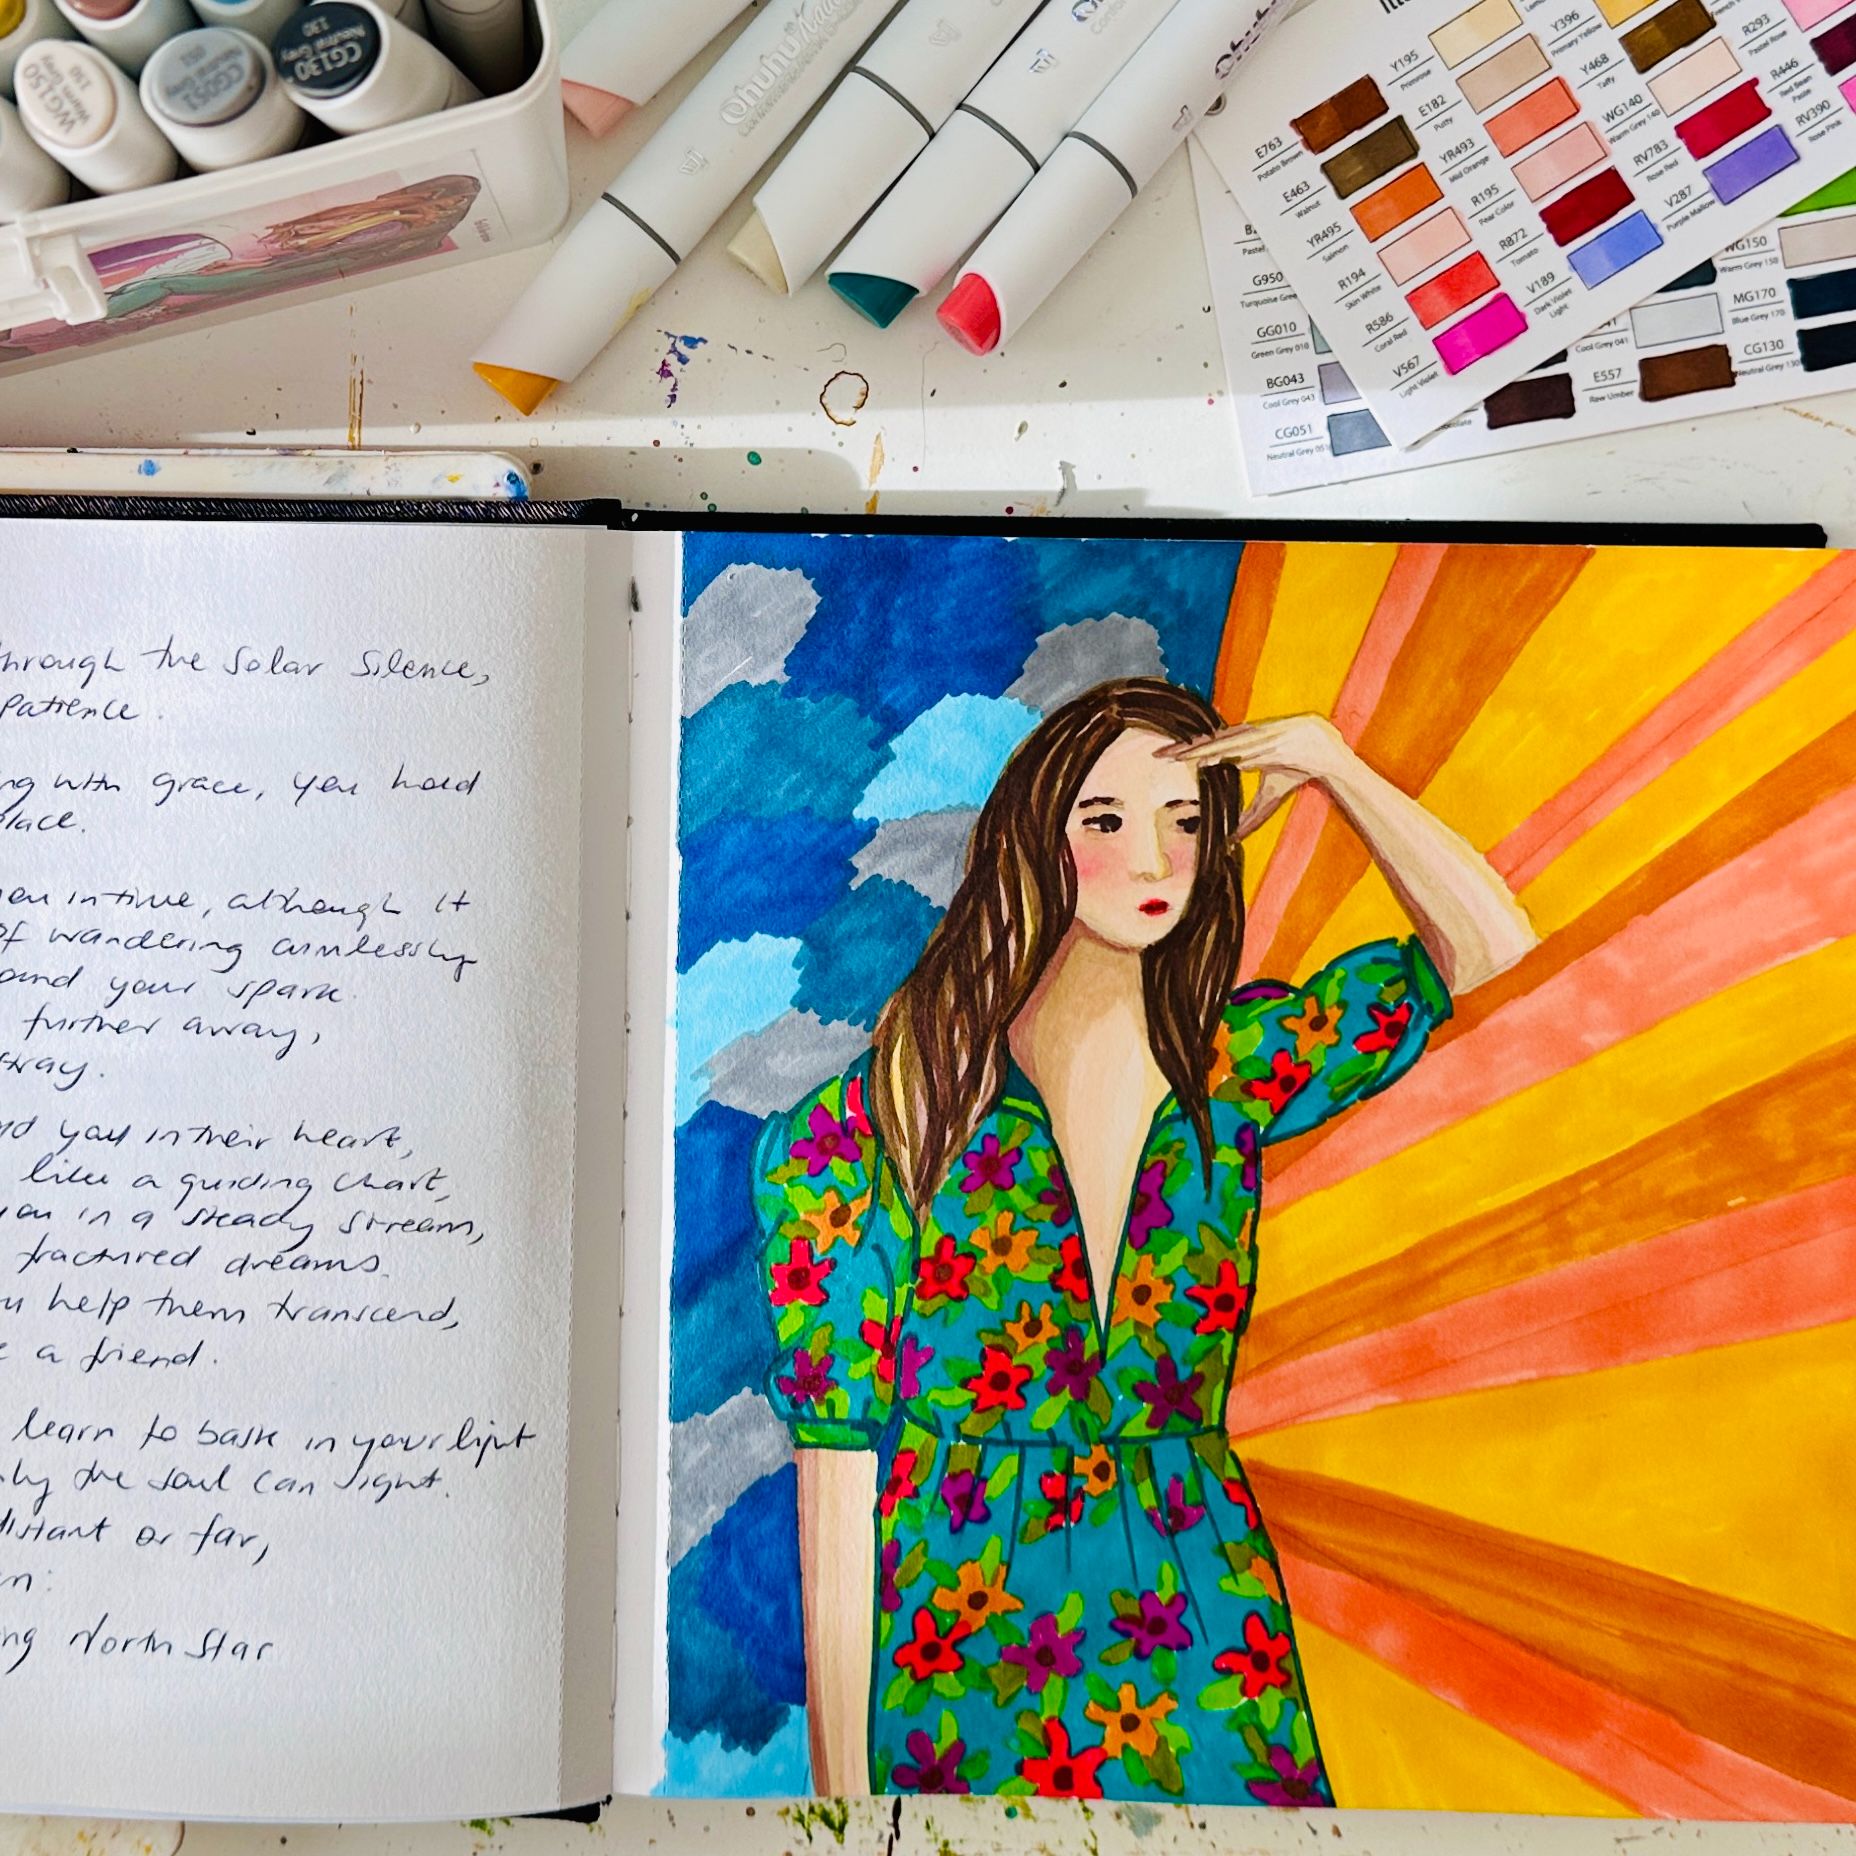 WG150
Warm Grey
150
CG051
Neutral Grey
051
CG130
Neutral Grey
130
Ohuhu
Ohuhu
Y195
Primrose
Y396
Primary Yellow
R293
Pastel Rose
E763
Potato Brown
E182
Putty
Y468
Taffy
R446
Red Bean
Paste
E463
Walnut
YR493
Mid Orange
WG140
Warm Grey 140
RV390
Rose Pink
YR495
Salmon
R195
Pear Color
RV783
Rose Red
R194
Skin White
R872
Tomato
V287
Purple Mallow
R586
Coral Red
V189
Dark Violet
Light
V567
Light Violet
G950
Turquoise Gree
WG150
Warm Grey 150
GG010
Green Grey 010
MG170
Blue Grey 170
BG043
Cool Grey 043
Cool Grey 041
CG130
Neutral Grey 130
CG051
Neutral Grey 051
E557
Raw Umber
through the Solar Silence,
patience.
ng with grace, you hold
place.
en in time, although it
of wandering aimlessly
ound your spark.
further away,
stray.
nd you in their heart,
like a guiding chart,
you in a steady stream,
fractured dreams.
u help them transcend,
e a friend.
learn to bask in your light
nly the soul can sight.
distant or far,
n:
ng North Star